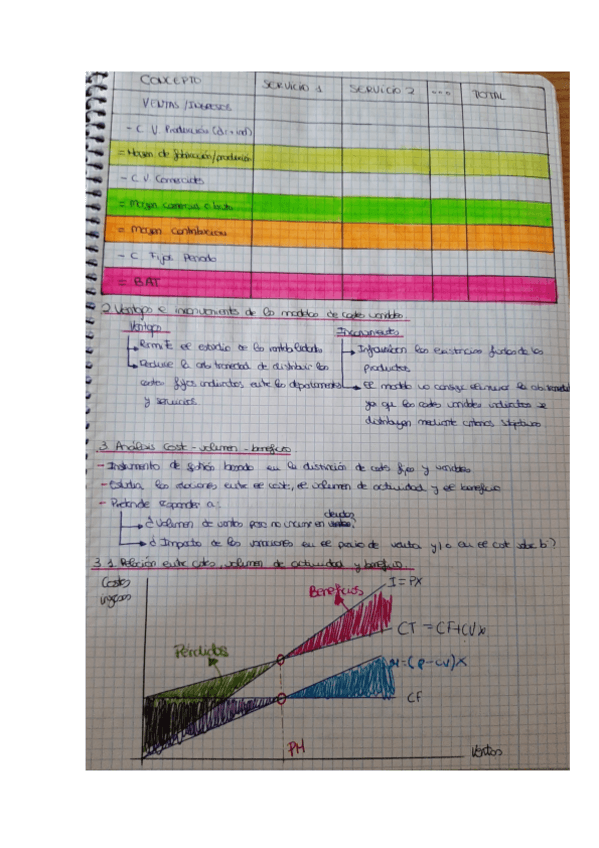 CONCEPTO SERVICIO 1 SERVICIO 2 ... TOTAL
VENTAS / INGRESOS
- C. V. Producción (di + ind)
= Margen de fabricación/producción
- C. V. Comerciales
= Margen comercial o bruto
= Margen Contribución
- C. Fijos Periodo
= BAT
2. Ventajas e inconvenientes de los modelos de costes variables
Ventajas
Permite el estudio de la rentabilidad
Reduce la arbitrariedad de distribuir los
costes fijos indirectos entre los departamentos
y servicios.
Inconvenientes
Infravaloran las existencias finales de los
productos
El modelo no consigue eliminar la arbitrariedad
ya que los costes variables indirectos se
distribuyen mediante criterios subjetivos
3. Análisis coste - volumen - beneficio
- Instrumento de gestión basado en la distinción de costes fijos y variables
- Estudia las relaciones entre el coste, el volumen de actividad y el beneficio
- Pretende responder a:
¿Volumen de ventas para no incurrir en deudas?
¿Impacto de las variaciones en el precio de venta y/o en el cost sobre b?
3.1. Relación entre costes, volumen de actividad y beneficio
Costes
ingresos
Beneficios
I = PX
CT = CF + CVx
Pérdidas
M = (P - CV)X
CF
PM
Ventas